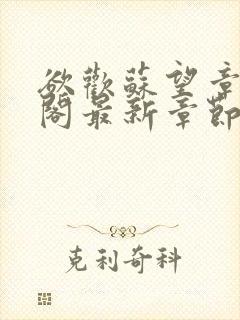 欲歡蘇望章
閣最新章節
克利奇科